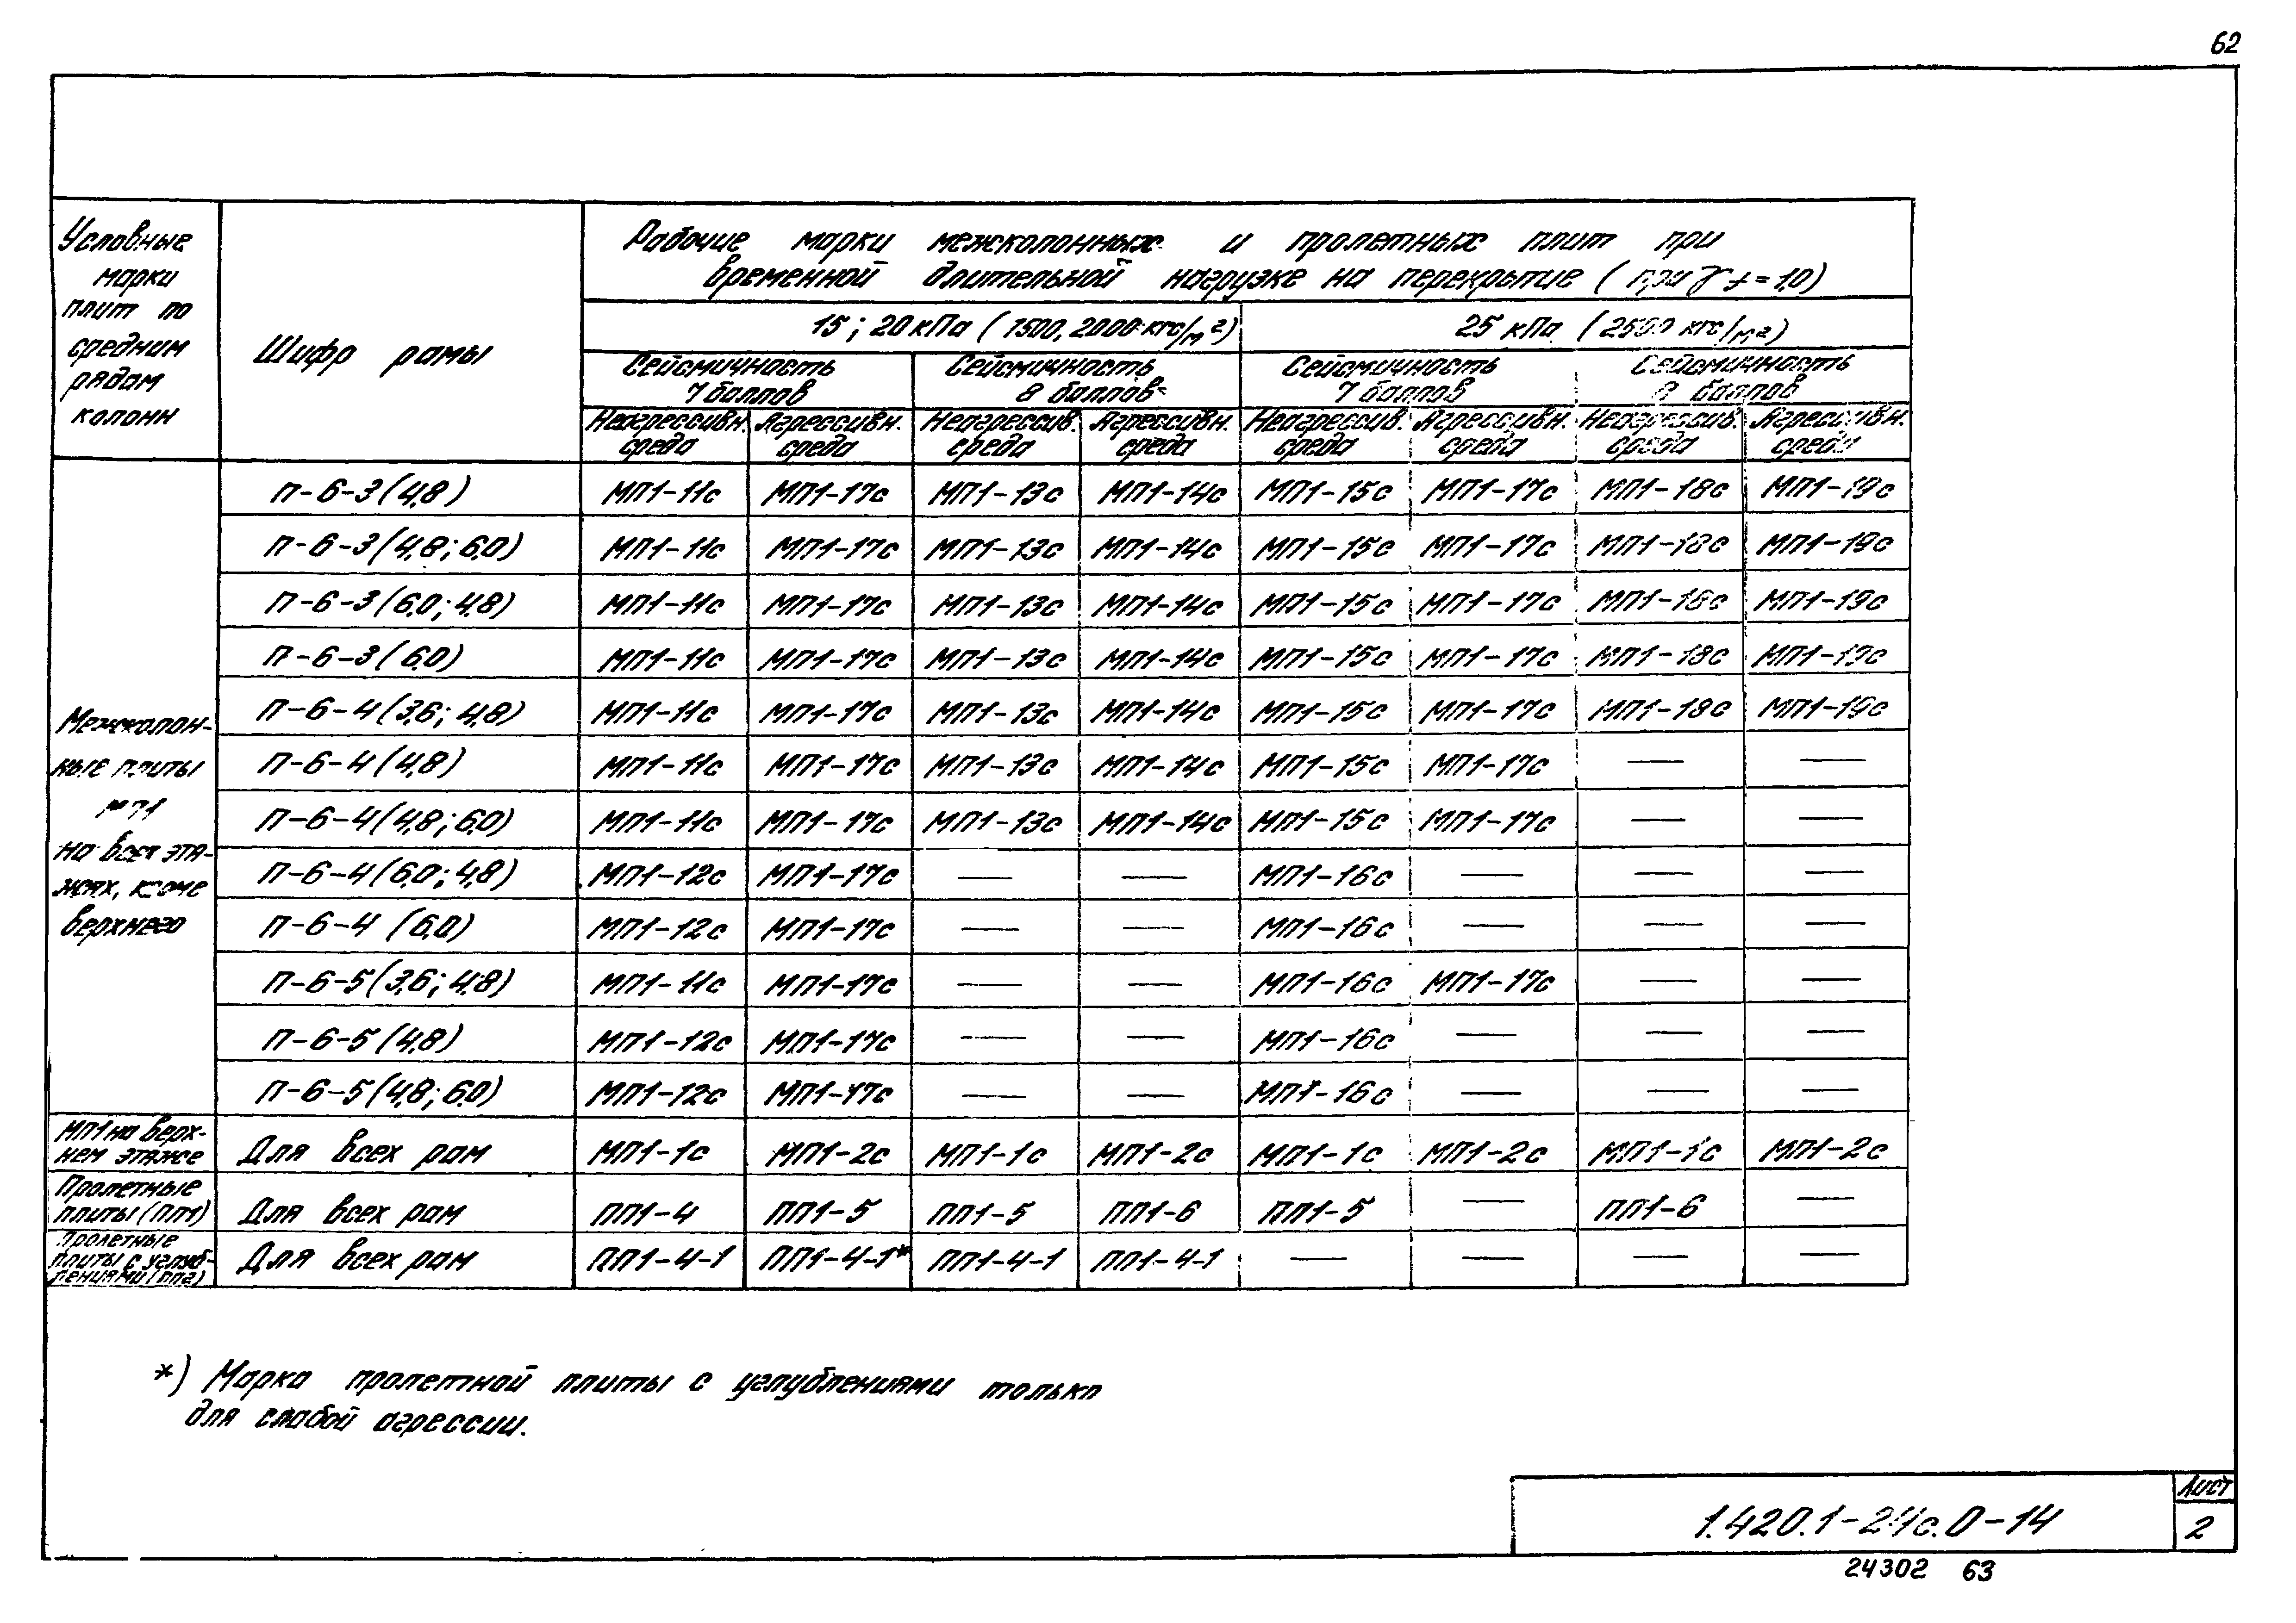 62
Условные марки плит по средним рядам колонн
Шифр рамы
Рабочие марки межколонных и пролетных плит при
временной длительной нагрузке на перекрытие (при γf=1,0)
15; 20 кПа (1500, 2000 кгс/м²)
25 кПа (2500 кгс/м²)
Сейсмичность 7 баллов
Сейсмичность 8 баллов
Сейсмичность 7 баллов
Сейсмичность 8 баллов
Неагрессивн. среда
Агрессивн. среда
Неагрессив. среда
Агрессивн. среда
Неагрессив. среда
Агрессивн. среда
Неагрессив. среда
Агрессивн. среда
Межколон-
ные плиты
МП1
на всех эта-
жах, кроме
верхнего
П-6-3(4,8) МП1-11с МП1-17с МП1-13с МП1-14с МП1-15с МП1-17с МП1-18с МП1-19с
П-6-3(4,8; 6,0) МП1-11с МП1-17с МП1-13с МП1-14с МП1-15с МП1-17с МП1-18с МП1-19с
П-6-3(6,0; 4,8) МП1-11с МП1-17с МП1-13с МП1-14с МП1-15с МП1-17с МП1-18с МП1-19с
П-6-3(6,0) МП1-11с МП1-17с МП1-13с МП1-14с МП1-15с МП1-17с МП1-18с МП1-19с
П-6-4(3,6; 4,8) МП1-11с МП1-17с МП1-13с МП1-14с МП1-15с МП1-17с МП1-18с МП1-19с
П-6-4(4,8) МП1-11с МП1-17с МП1-13с МП1-14с МП1-15с МП1-17с — —
П-6-4(4,8; 6,0) МП1-11с МП1-17с МП1-13с МП1-14с МП1-15с МП1-17с — —
П-6-4(6,0; 4,8) МП1-12с МП1-17с — — МП1-16с — — —
П-6-4 (6,0) МП1-12с МП1-17с — — МП1-16с — — —
П-6-5(3,6; 4,8) МП1-11с МП1-17с — — МП1-16с МП1-17с — —
П-6-5(4,8) МП1-12с МП1-17с — — МП1-16с — — —
П-6-5(4,8; 6,0) МП1-12с МП1-17с — — МП1-16с — — —
МП1 на верх-
нем этаже
Для всех рам МП1-1с МП1-2с МП1-1с МП1-2с МП1-1с МП1-2с МП1-1с МП1-2с
Пролетные
плиты (ПП1)
Для всех рам ПП1-4 ПП1-5 ПП1-5 ПП1-6 ПП1-5 — ПП1-6 —
Пролетные
плиты с углуб-
лениями (ПП2)
Для всех рам ПП1-4-1 ПП1-4-1* ПП1-4-1 ПП1-4-1 — — — —
*) Марка пролетной плиты с углублениями только
для слабой агрессии.
1.420.1-24с.0-14
Лист
2
24302 63